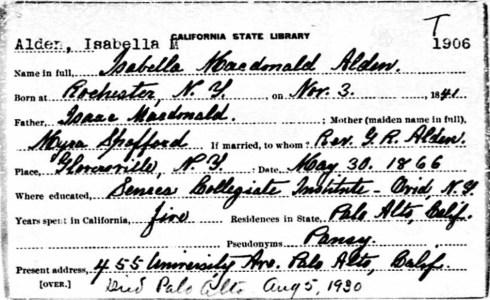 T
CALIFORNIA STATE LIBRARY
Alden, Isabella M 1906
Name in full, Isabella Macdonald Alden.
Born at Rochester, N. Y. on Nov. 3. 1841
Father, Isaac Macdonald. ; Mother (maiden name in full),
Myra Spafford If married, to whom? Rev. G. R. Alden.
Place, Gloversville, N. Y. ; Date, May 30. 1866
Where educated, Seneca Collegiate Institute - Ovid, N. Y.
Years spent in California, five Residences in State, Palo Alto, Calif.
Pseudonyms Pansy.
Present address, 455 University Ave. Palo Alto, Calif.
[OVER.] Died Palo Alto Aug 5, 1930